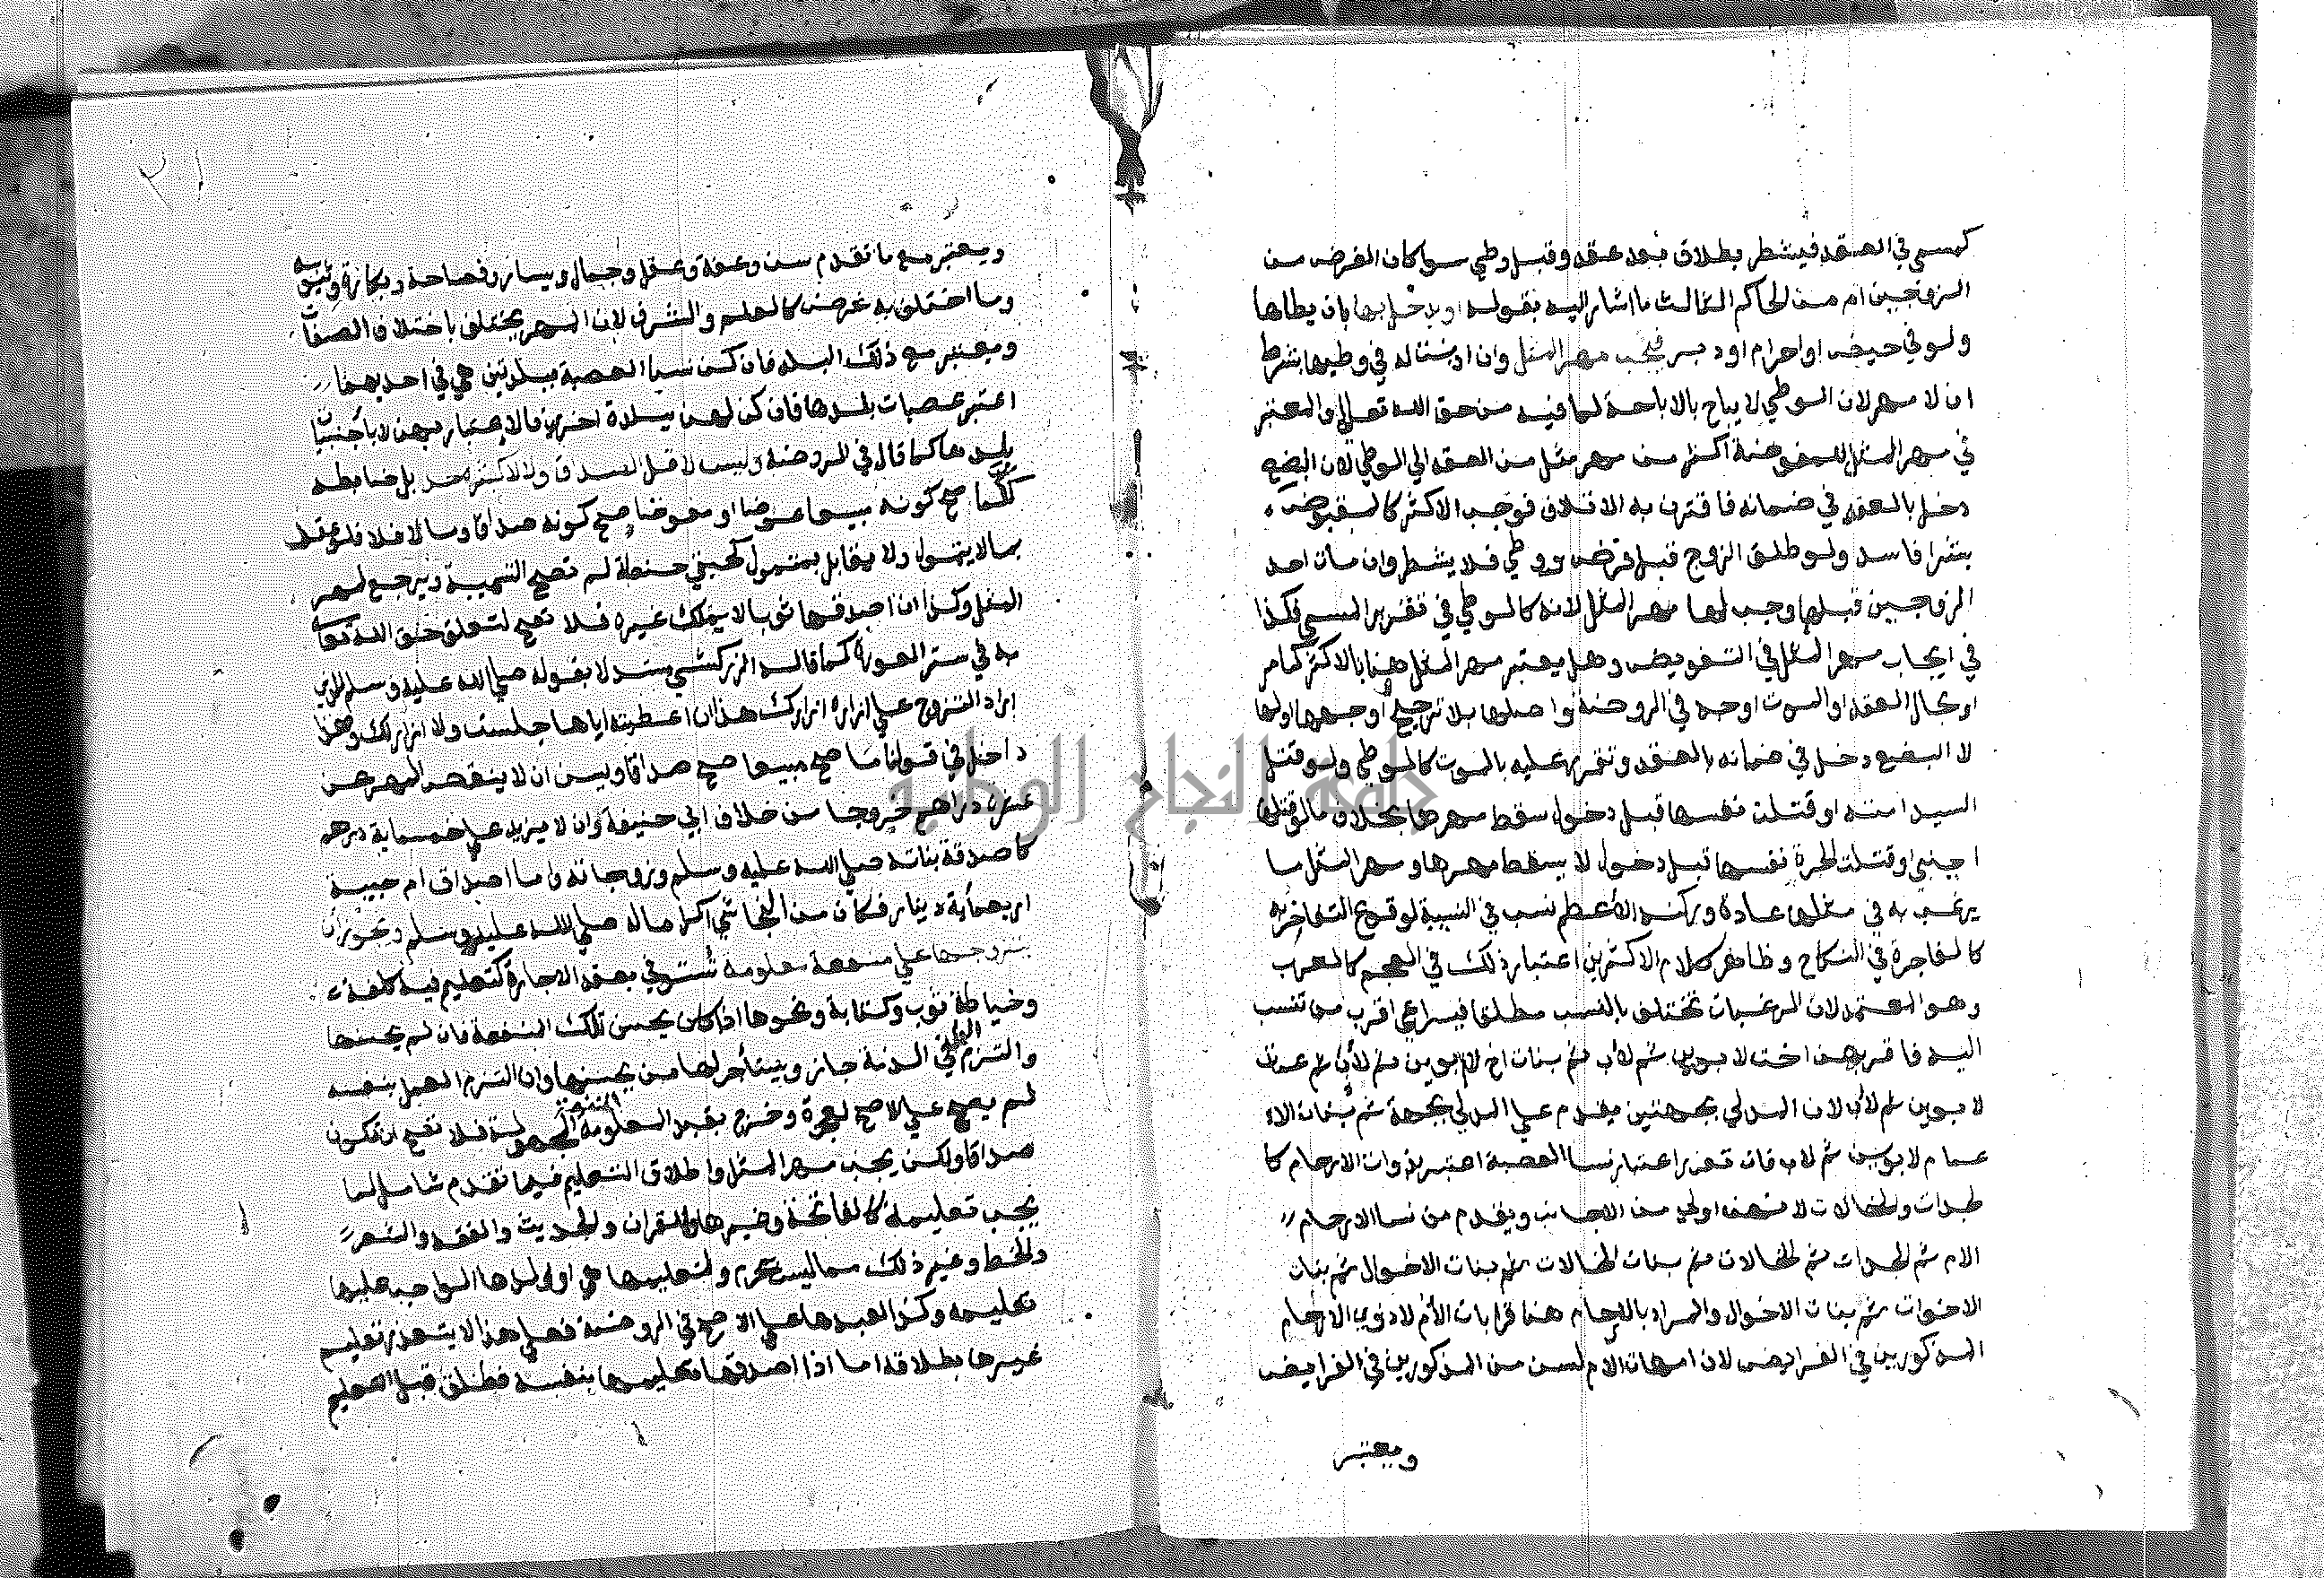 كمسمى في العقد فيشطر بطلاق بعد عقد وقبل وطي سوا كان الفرض من
الزوجين ام من الحاكم الثالث ما اشار اليه بقوله او يدخل بها بان يطاها
ولو في حيض او احرام او دبر فيجب مهر المثل وان اذنت له في وطيها بشرط
ان لا مهر لان الوطي لا يباح بالاباحة لما فيه من حق الله تعالى والمعتبر
في مهر المثل للمفوضة اكثر من مهر مثل من العقد الي الوطي لان البضع
دخل بالعقد في ضمانه فاقترن به الاتلاف فوجب الاكثر كالمقبوض
بشرا فاسد ولو طلق الزوج قبل فرض ووطي فلا يشطر وان مات احد
الزوجين قبلها وجب لها مهر المثل لانه كالوطي في تقرير المسمى فكذا
في ايجاب مهر المثل في التفويض وهل يعتبر مهر المثل هنا بالاكثر كما مر
او بحال العقد او الموت اوجه في الروضة واصلها بلا ترجيح اوجهها اولها
لا البضع دخل في ضمانه بالعقد وتقرر عليه بالموت كالوطي ولو قتل
السيد امته او قتلت نفسها قبل دخول سقط مهرها بخلاف ما لو قتلها
اجنبي او قتلت الحرة نفسها قبل دخول لا يسقط مهرها ومهر المثل ما
يرغب به في مثلها عادة وركنه الاعظم نسب في النسيبة لوقوع التفاخر به
كالفاجرة في النكاح وظاهر كلام الاكثرين اعتبار ذلك في العجم كالعرب
وهو المعتمد لان الرغبات تختلف بالنسب مطلقا فيراعي اقرب من تنسب
اليه فاقربهن اخت لابوين ثم لاب ثم بنات اخ لابوين ثم لاب ثم عمات
لابوين ثم لاب لان المدلي بجهتين مقدم علي المدلي بجهة ثم بنات الا
عمام لابوين ثم لاب فان تعذر اعتبار نسا العصبة اعتبر ذوات الارحام كا
لجدات والخالات لانهن اولي من الاجانب ويقدم من نسا الارحام
الام ثم الجدات ثم الخالات ثم بنات الخالات ثم بنات الاخوال ثم بنات
الاخوات ثم بنات الاخوال والمراد بالارحام هنا قرابات الام لا ذوي الارحام
المذكورين في الفرايض لان امهات الام لسن من المذكورين في الفرايض
ويعتبر
ويعتبر مع ما تقدم سن وعفة وعقل وجمال ويسار وفصاحة وبكارة وثيوبه
وما اختلف به غرض كالعلم والشرف لان المهر يختلف باختلاف الصفات
ويعتبر مع ذلك البلد فان كن نسا العصبة ببلدتين هي في احديهما
اعتبر عصبات بلدها فان كن لهن ببلدة اخري فالاعتبار بهن لا باجنبيات
بلدها كما قال في الروضة وليس لاقل الصداق ولا لاكثره حد بل ضابطه
كلما صح كونه مبيعا عوضا او معوضا صح كونه صداقا وما لا فلا فلو عقد
بما لا يتمول ولا يقابل بمتمول كحبتي حنطة لم تصح التسمية ويرجع لمهر
المثل وكذا ان اصدقها ثوبا لا يملك غيره فلا تصح لتعلق حق الله تعالي
به في ستر العورة كما قاله الزركشي ستد لا بقوله صلي الله عليه وسلم للذي
اراد التزوج علي ازاره ازارك هذا ان اعطيته اياها جلست ولا ازار لك
داخل في قولنا ما صح مبيعا صح صداقا ويسن ان لا ينقص المهر عن
عشرة دراهم خروجا من خلاف ابي حنيفة وان لا يزيد علي خمسماية درهم
كاصدقة بناته صلي الله عليه وسلم وزوجاته واما اصداق ام حبيبة
اربعماية دينار فكان من النجاشي اكراما له صلي الله عليه وسلم ويجوز ان
يتزوجها علي منفعة معلومة تستوفي بعقد الاجارة كتعليم فيه كلفة
وخياطة ثوب وكتابة ونحوها اذا كان يحسن تلك المنفعة فان لم يحسنها
والتزم العمل في الذمة جاز ويستاجر لها من يحسنها وان التزم العمل بنفسه
لم يصح علي الاصح لعجزه وخرج بقيد المعلومة المنفعة المجهولة فلا تصح ان تكون
صداقا ولكن يجب مهر المثل واطلاق التعليم فيما تقدم شامل لما
يجب تعليمه كالفاتحة وغيرها والقران والحديث والفقه والشعر
والخط وغير ذلك مما ليس بمحرم ولتعليمها هي او لولدها الواجب عليها
تعليمه وكذا العبدها علي الاصح في الروضة فعلي هذا لا يتعذر تعليم
غيرها بطلاقه اما اذا اصدقها تعليمها بنفسه فطلق قبل التعليم
جامعة النجاح الوطنية